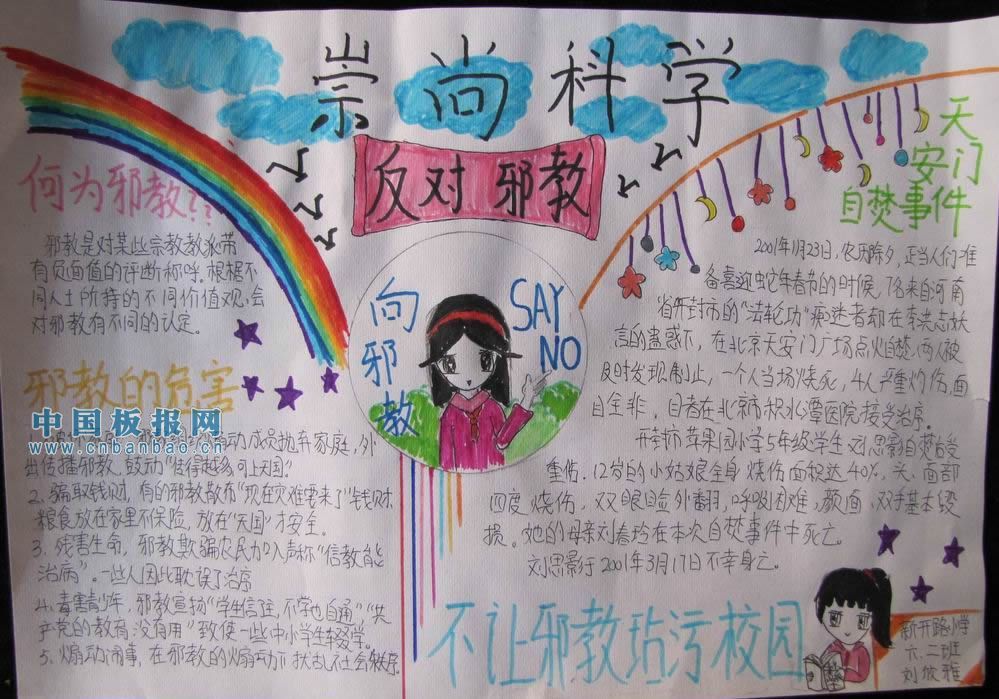 崇尚科学
反对邪教
何为邪教??
邪教是对某些宗教教派带
有负面值的评断称呼。根椐不
同人士所持的不同价值观,会
对邪教有不同的认定。
邪教的危害
中国板报网
www.cnbanbao.cn
动成员抛弃家庭,外
出传播邪教,鼓动“传得越多,可上天国”
2、骗取钱财,有的邪教散布“现在灾难要来了”钱财
粮食放在家里不保险,放在“天国”才安全。
3、残害生命,邪教欺骗农民加入声称“信教能
治病”。一些人因此耽误了治疗
4、毒害青少年,邪教宣扬“学生信主,不学也自通”“共
产党的教育没有用”致使一些中小学生辍学。
5、煽动闹事,在邪教的煽动下扰乱社会秩序
向邪教
SAY
NO
天
安门
自焚事件
2001年1月23日,农历除夕,正当人们准
备喜迎蛇年春节的时候,7名来自河南
省开封市的“法轮功”痴迷者却在李洪志妖
言的蛊惑下,在北京天安门广场点火自焚,两人被
及时发现制止,一个人当场烧死,4人严重灼伤,面
目全非,目者在北京市积水潭医院接受治疗。
开封市苹果园小学5年级学生刘思影自焚后受
重伤。12岁的小姑娘全身烧伤面积达40%,头、面部
四度烧伤,双眼睑外翻,呼吸困难,颜面、双手基本毁
损。她的母亲刘春玲在本次自焚事件中死亡。
刘思影于2001年3月17日不幸身亡。
不让邪教玷污校园
新开路小学
六、二班